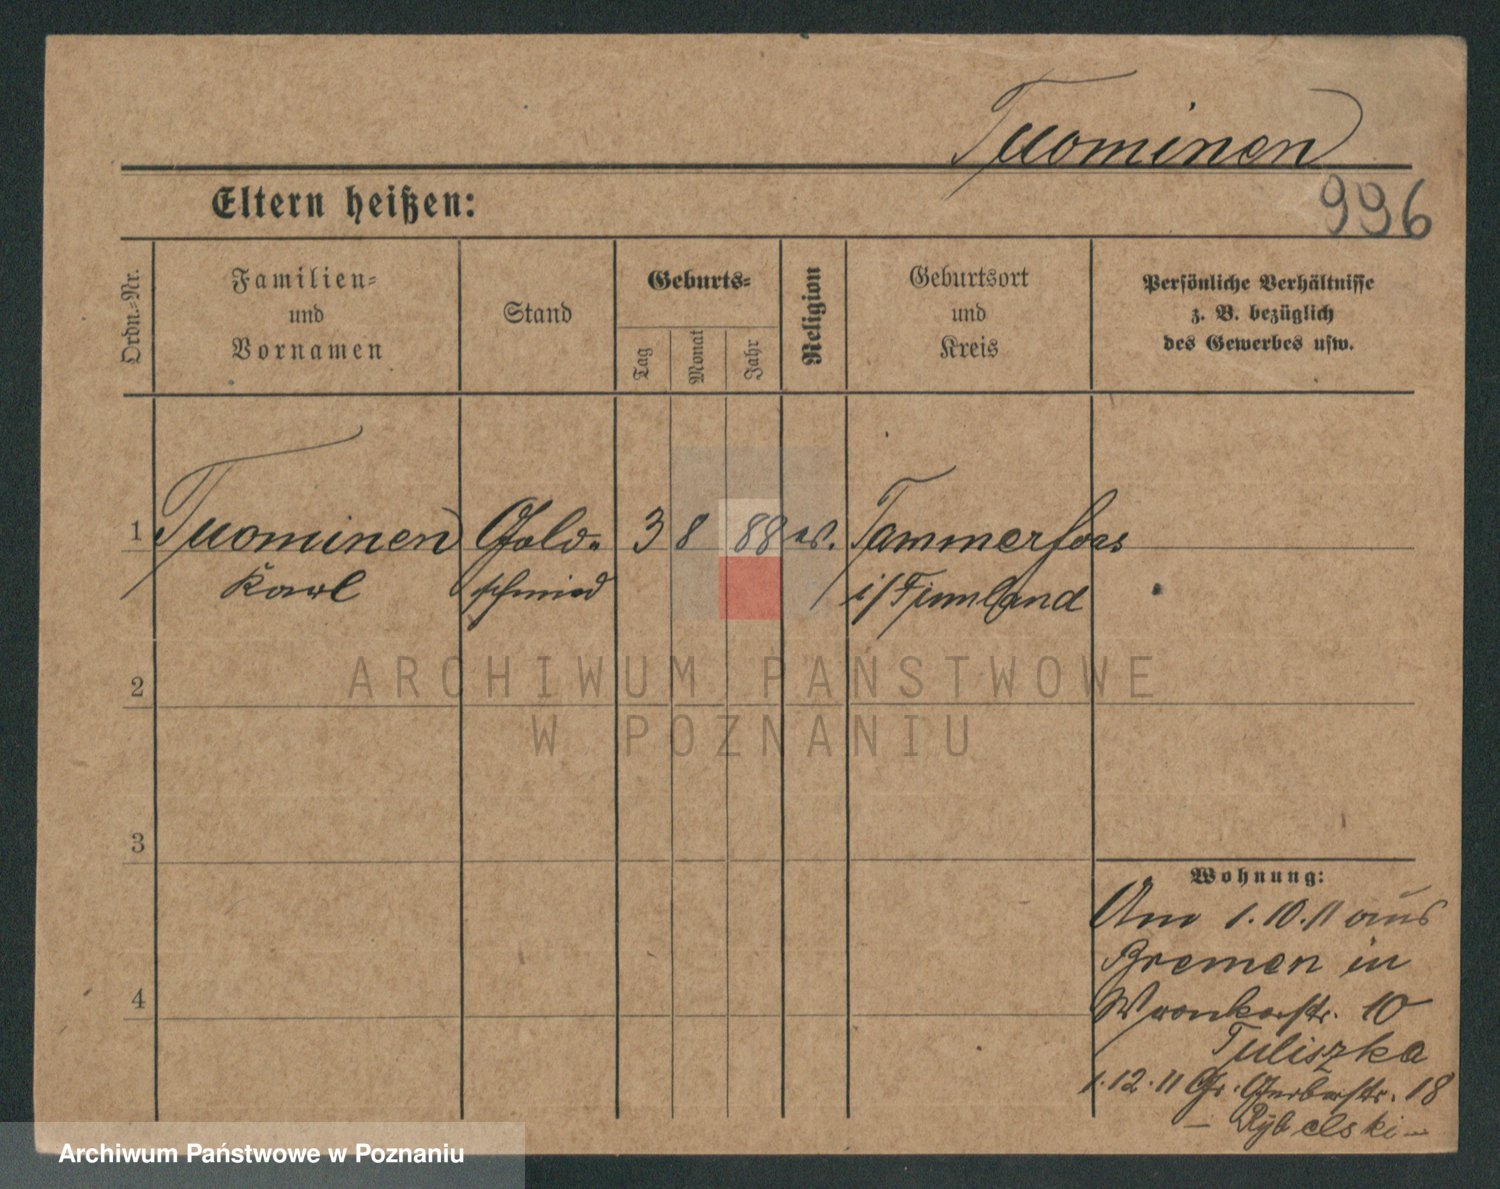 Tuominen
996
Eltern heißen:
Ordn.-Nr.
Familien-
und
Vornamen
Stand
Geburts-
Tag
Monat
Jahr
Religion
Geburtsort
und
Kreis
Persönliche Verhältnisse
z. B. bezüglich
des Gewerbes usw.
1 Tuominen Gold- 3 8 88 ev. Tammerfors
Karl schmied i/Finnland
2
3
4
Wohnung:
Am 1.10.11 aus
Bremen in
Wronkerstr. 10
Tuliszka
1.12.11 Gr. Gerberstr. 18
— Rybelski —
ARCHIWUM PAŃSTWOWE
W POZNANIU
Archiwum Państwowe w Poznaniu